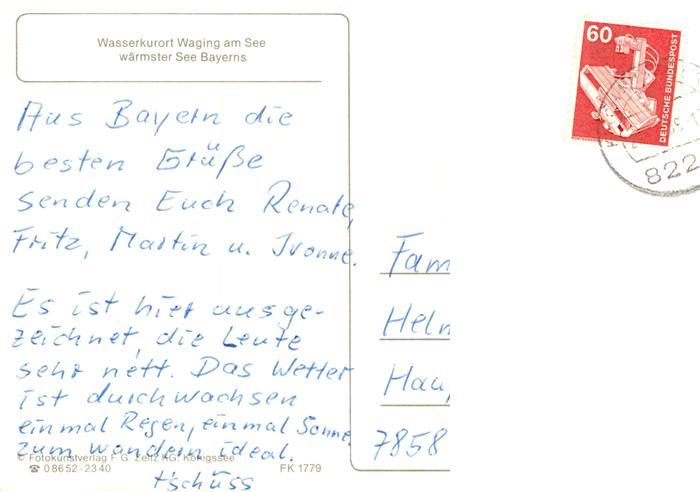 Wasserkurort Waging am See
wärmster See Bayerns
Aus Bayern die
besten Grüße
senden Euch Renate,
Fritz, Martin u. Ivonne.
Es ist hier ausge-
zeichnet, die Leute
sehr nett. Das Wetter
ist durchwachsen
einmal Regen, einmal Sonne
zum wandern ideal.
tschüss
© Fotokunstverlag F. G. Zeitz KG, Königssee
☎ 0 86 52 - 23 40
FK 1779
60
DEUTSCHE BUNDESPOST
822
Fam
Heln
Hau
7858